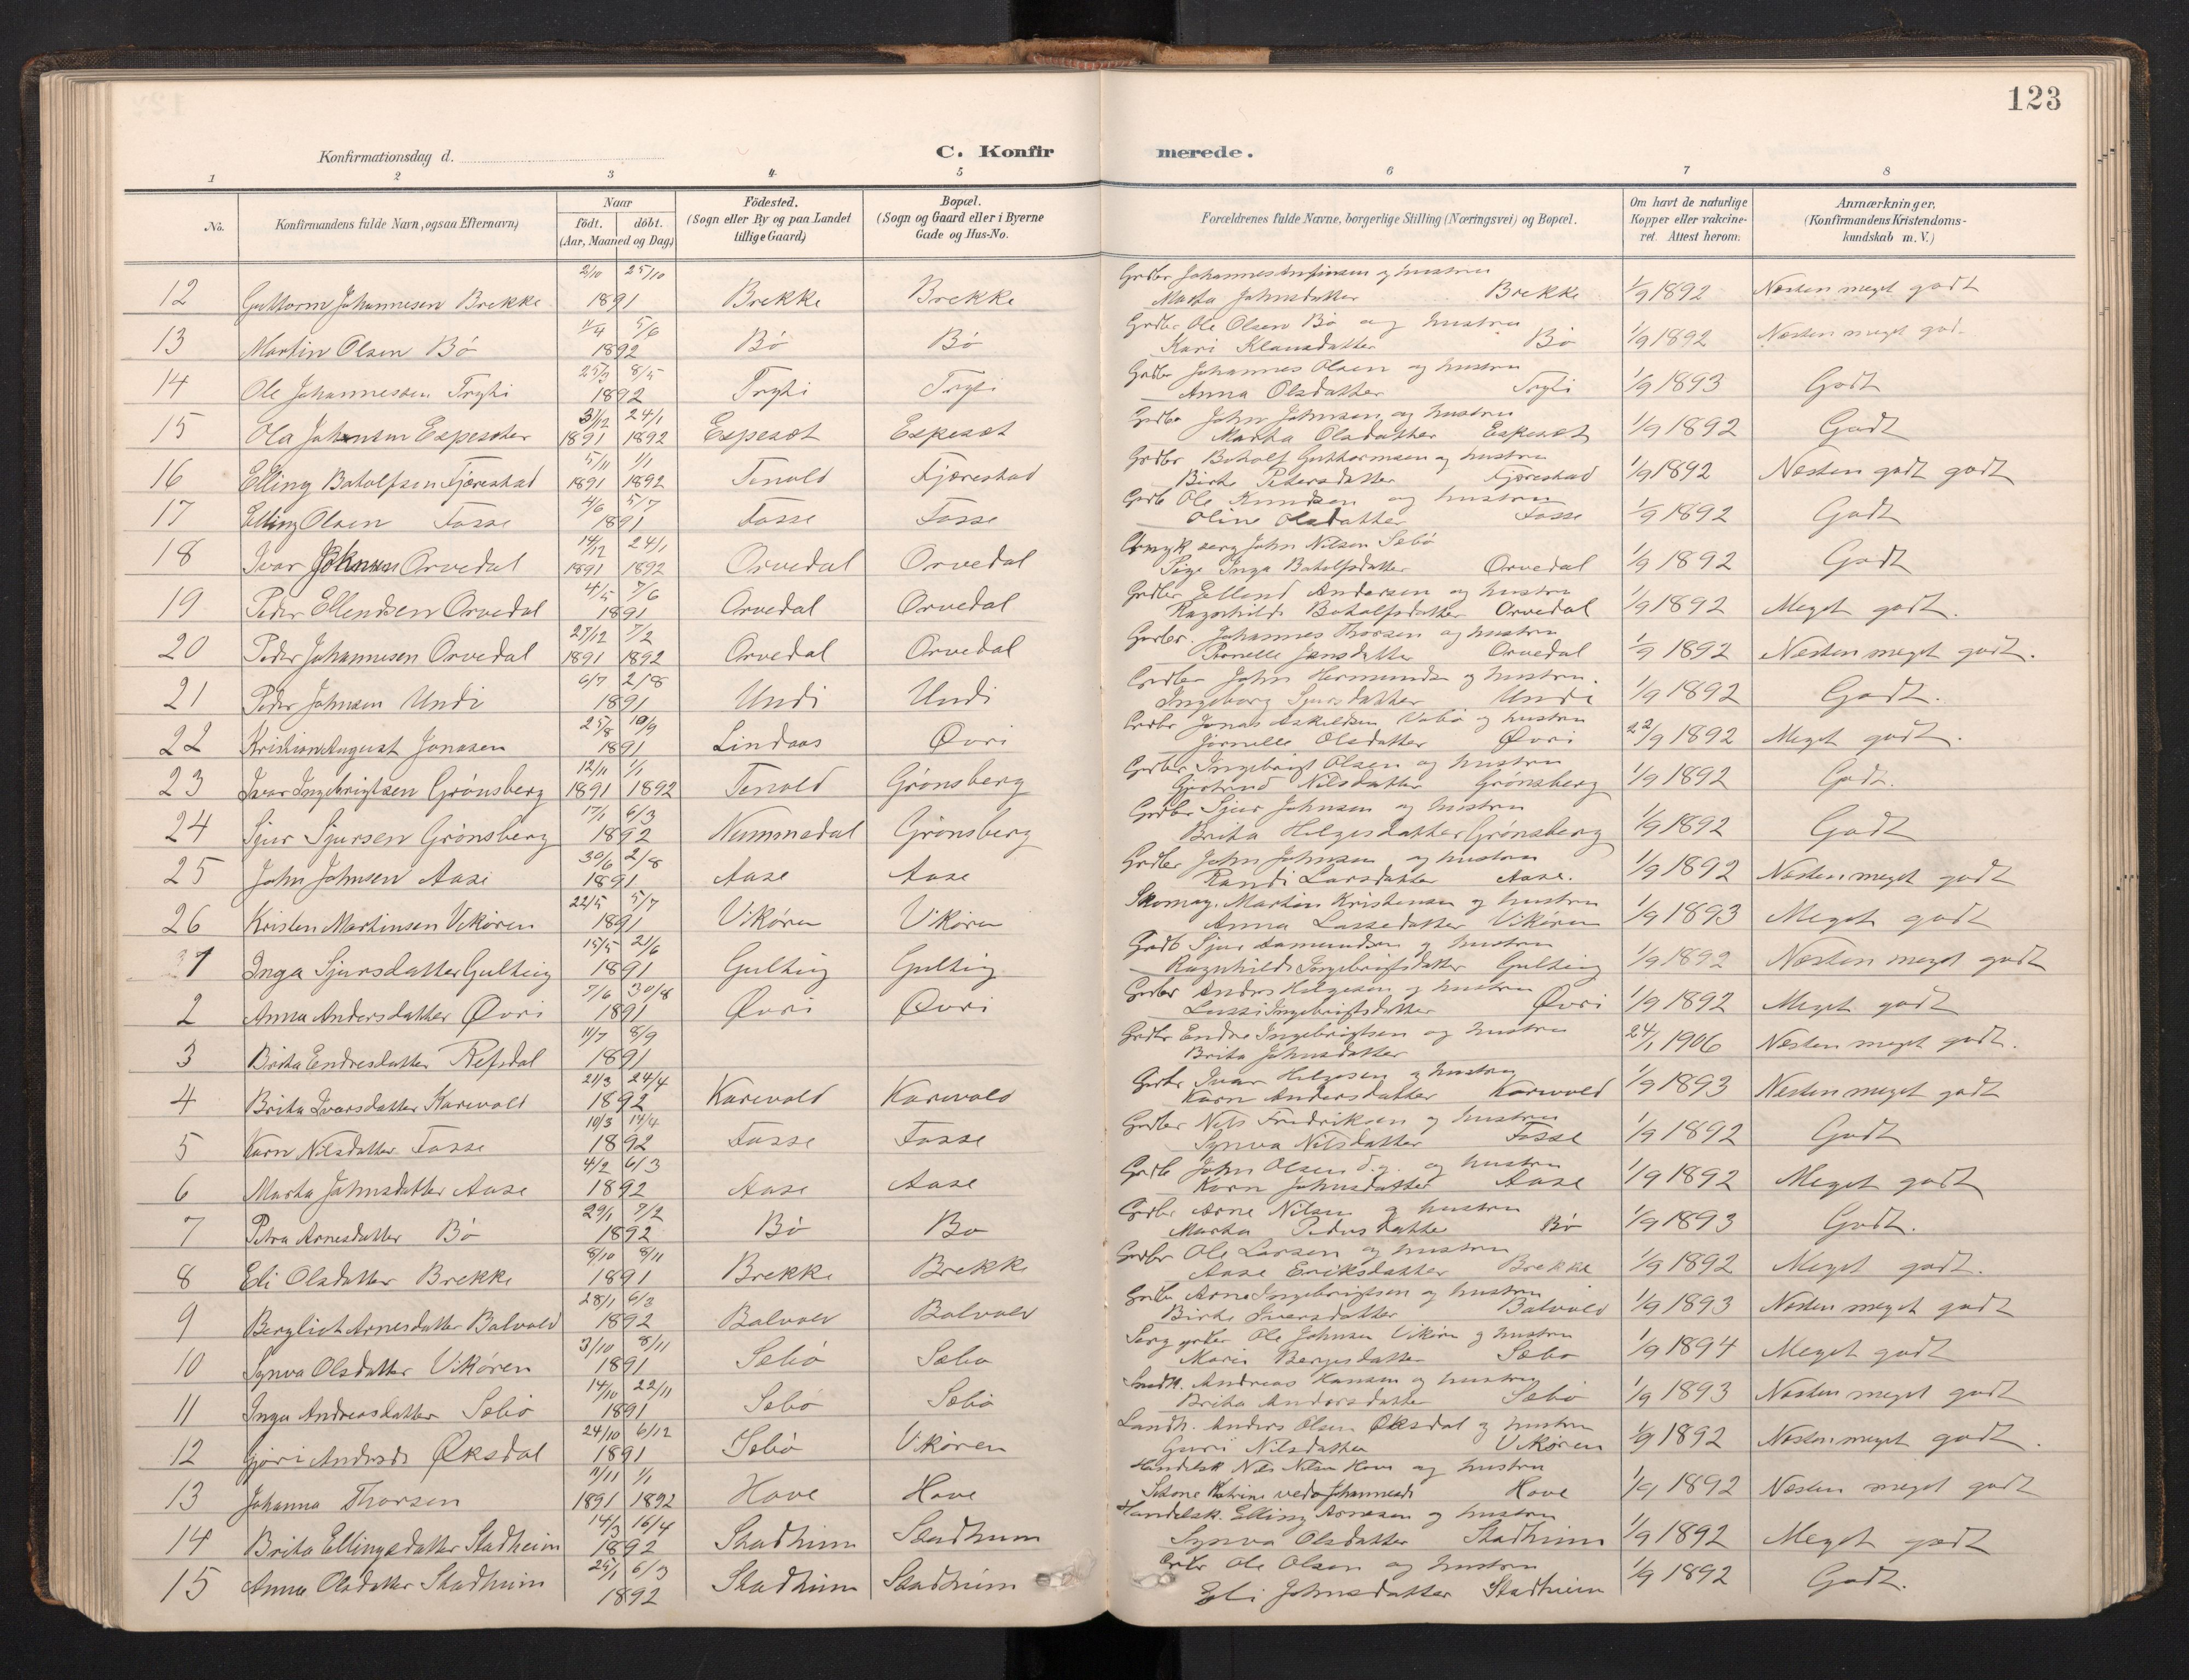 123
Konfirmationsdag d.
C. Konfirmerede.
1 2 3 4 5 6 7 8
No.
Konfirmandens fulde Navn, ogsaa Efternavn)
Naar
födt. döbt.
(Aar, Maaned og Dag)
Födested.
(Sogn eller By og paa Landet
tillige Gaard)
Bopæl.
(Sogn og Gaard eller i Byerne
Gade og Hus-No.
Forældrenes fulde Navne, borgerlige Stilling (Næringsvei) og Bopæl.
Om havt de naturlige
Kopper eller vakcine-
ret. Attest herom.
Anmærkninger.
(Konfirmandens Kristendoms-
kundskab m. V.)
2/10 25/10 Grdbr Johannes og hustru
12 Guttorm Johannesen Brekke 1891 Brekke Brekke Marta Johnsdatter Brekke 1/9 1892 Næsten meget godt
5/6 Grdbr Ole Olsen Bö og hustru
13 Martin Olsen Bö 1892 Bö Bö Kari Klausdatter Bö 1/9 1892 Næsten meget god.
8/5 Grdbr Johannes Olsen og hustru
14 Ole Johannessen Tryti 1892 Tryti Tryti Anna Olsdatter Tryti 1/9 1893 Godt
31/12 24/1 Grdbr John Johnsen og hustru
15 Ola Johnsen 1891 1892 Espeset Espeset Marta Olsdatter Espeset 1/9 1892 Godt
5/11 1/1 Grdbr Botolf Guttormsen og hustru
16 Elling Botolfsen Fjærestad 1891 1892 Tenold Fjærestad Birte Petersdatter Fjærestad 1/9 1892 Næsten godt godt
4/6 5/7 Grdb Ole Knudsen og hustru
17 Elling Olsen Fosse 1891 Fosse Fosse Oline Olsdatter Fosse 1/9 1892 Godt
14/12 24/1 John Nilsen Sebö
18 Ivar Johnsen Orvedal 1891 1892 Orvedal Orvedal Pige Inga Botolfsdatter Orvedal 1/9 1892 Godt
4/5 7/6 Grdbr Ellend Andersen og hustru
19 Peder Ellendsen Orvedal 1891 Orvedal Orvedal Ragnhilde Botolfsdatter Orvedal 1/9 1892 Meget godt.
27/12 7/2 Grdbr. Johannes Thorsen og hustru
20 Peder Johannesen Orvedal 1891 1892 Orvedal Orvedal Pernelle Jensdatter Orvedal 1/9 1892 Næsten meget godt.
6/7 2/8 Grdbr John Hermundsen og hustru.
21 Peder Johnsen Undi 1891 Undi Undi Ingeborg Sjursdatter Undi 1/9 1892 Godt.
25/8 19/9 Grdbr Jonas Askildsen og hustru
22 Kristian August Jonasen 1891 Lindaas Øvri Jörnelle Olsdatter Øvri 22/9 1892 Meget godt.
12/11 1/1 Grdbr Ingebrigt Olsen og hustru
23 Ivar Ingebrigtsen Grönsberg 1891 1892 Tenold Grönsberg Gjertrud Nilsdatter Grönsberg 1/9 1892 Godt.
17/1 6/3 Grdbr Sjur Johnsen og hustru
24 Sjur Sjursen Grönsberg 1892 Nummedal Grönsberg Brita Helgesdatter Grönsberg 1/9 1892 Godt
30/6 2/8 Grdbr John Johnsen og hustru
25 John Johnsen Aase 1891 Aase Aase Randi Larsdatter Aase. 1/9 1892 Næsten meget godt
22/5 5/7 Skomag. Martin Kristensen og hustru
26 Kristen Martinsen Vikören 1891 Vikören Vikören Anna Lassedatter Vikören 1/9 1893 Meget godt
15/5 21/6 Grdb Sjur Aamundsen og hustru
1 Inga Sjursdatter Gulting 1891 Gulting Gulting Ragnhilde Ingebrigtsdatter Gulting 1/9 1892 Næsten meget godt
7/6 30/8 Grdbr Anders Helgesen og hustru
2 Anna Andersdatter Øvri 1891 Øvri Øvri Lussi Ingebrigtsdatter Øvri 1/9 1892 Meget godt
11/7 8/9 Grdbr Endre Ingebrigtsen og hustru
3 Brita Endresdatter Refsdal 1891 Brita Johnsdatter 24/1 1906 Næsten meget godt.
21/3 24/4 Grdbr Ivar Helgesen og hustru
4 Brita Ivarsdatter Karevold 1892 Karevold Karevold Karn Andersdatter Karevold 1/9 1893 Næsten meget godt
10/3 14/4 Grdbr Nils Fredriksen og hustru
5 Karn Nilsdatter Fosse 1892 Fosse Fosse Synva Nilsdatter Fosse 1/9 1892 Godt
4/2 6/3 Grdb John Olsen d.y. og hustru
6 Marta Johnsdatter Aase 1892 Aase Aase Karn Johnsdatter Aase 1/9 1892 Meget godt
29/1 7/2 Grdbr Arne Nilsen og hustru
7 Petra Arnesdatter Bö 1892 Bö Bo Marta Pedersdatter Bö 1/9 1893 Godt.
8/10 8/11 Grdbr Ole Larsen og hustru
8 Eli Olsdatter Brekke 1891 Brekke Brekke Aase Eriksdatter Brekke 1/9 1892 Meget godt.
28/1 6/3 Grdbr Arne Ingebrigtsen og hustru
9 Berglist Arnesdatter Bolvold 1892 Bolvold Bolvold Birte Iversdatter Bolvold 1/9 1893 Næsten meget godt
3/10 8/11 Ole Johnsen Vikören og hustru
10 Synva Olsdatter Vikören 1891 Sebö Sæbo Mari Bergesdatter Sæbo 1/9 1894 Meget godt
14/10 22/11 Andreas Hansen og hustru
11 Inga Andreasdatter Sebö 1891 Sebö Sebö Brita Andersdatter Sebö 1/9 1893 Næsten meget godt
24/10 6/12 Landh. Anders Olsen Øksdal og hustru
12 Gjöri Andersdr Øksdal 1891 Sebö Vikören Guri Nilsdatter Vikören 1/9 1892 Næsten meget godt.
1/1 Handelsk Nils Nilsen Hove og hustru
13 Johanna Thorsen 1891 1892 Hove Hove Hove 1/9 1892 Næsten meget godt
14/3 16/4 Handelsk. Elling Arnesen og hustru
14 Brita Ellingsdatter Stadheim 1892 Stadheim Stadheim Synva Olsdatter Stadheim 1/9 1892 Meget godt
25/1 6/3 Grdbr Ole Olsen og hustru
15 Anna Olsdatter Stadheim 1892 Stadheim Stadheim Eli Johnsdatter Stadheim 1/9 1892 Godt.